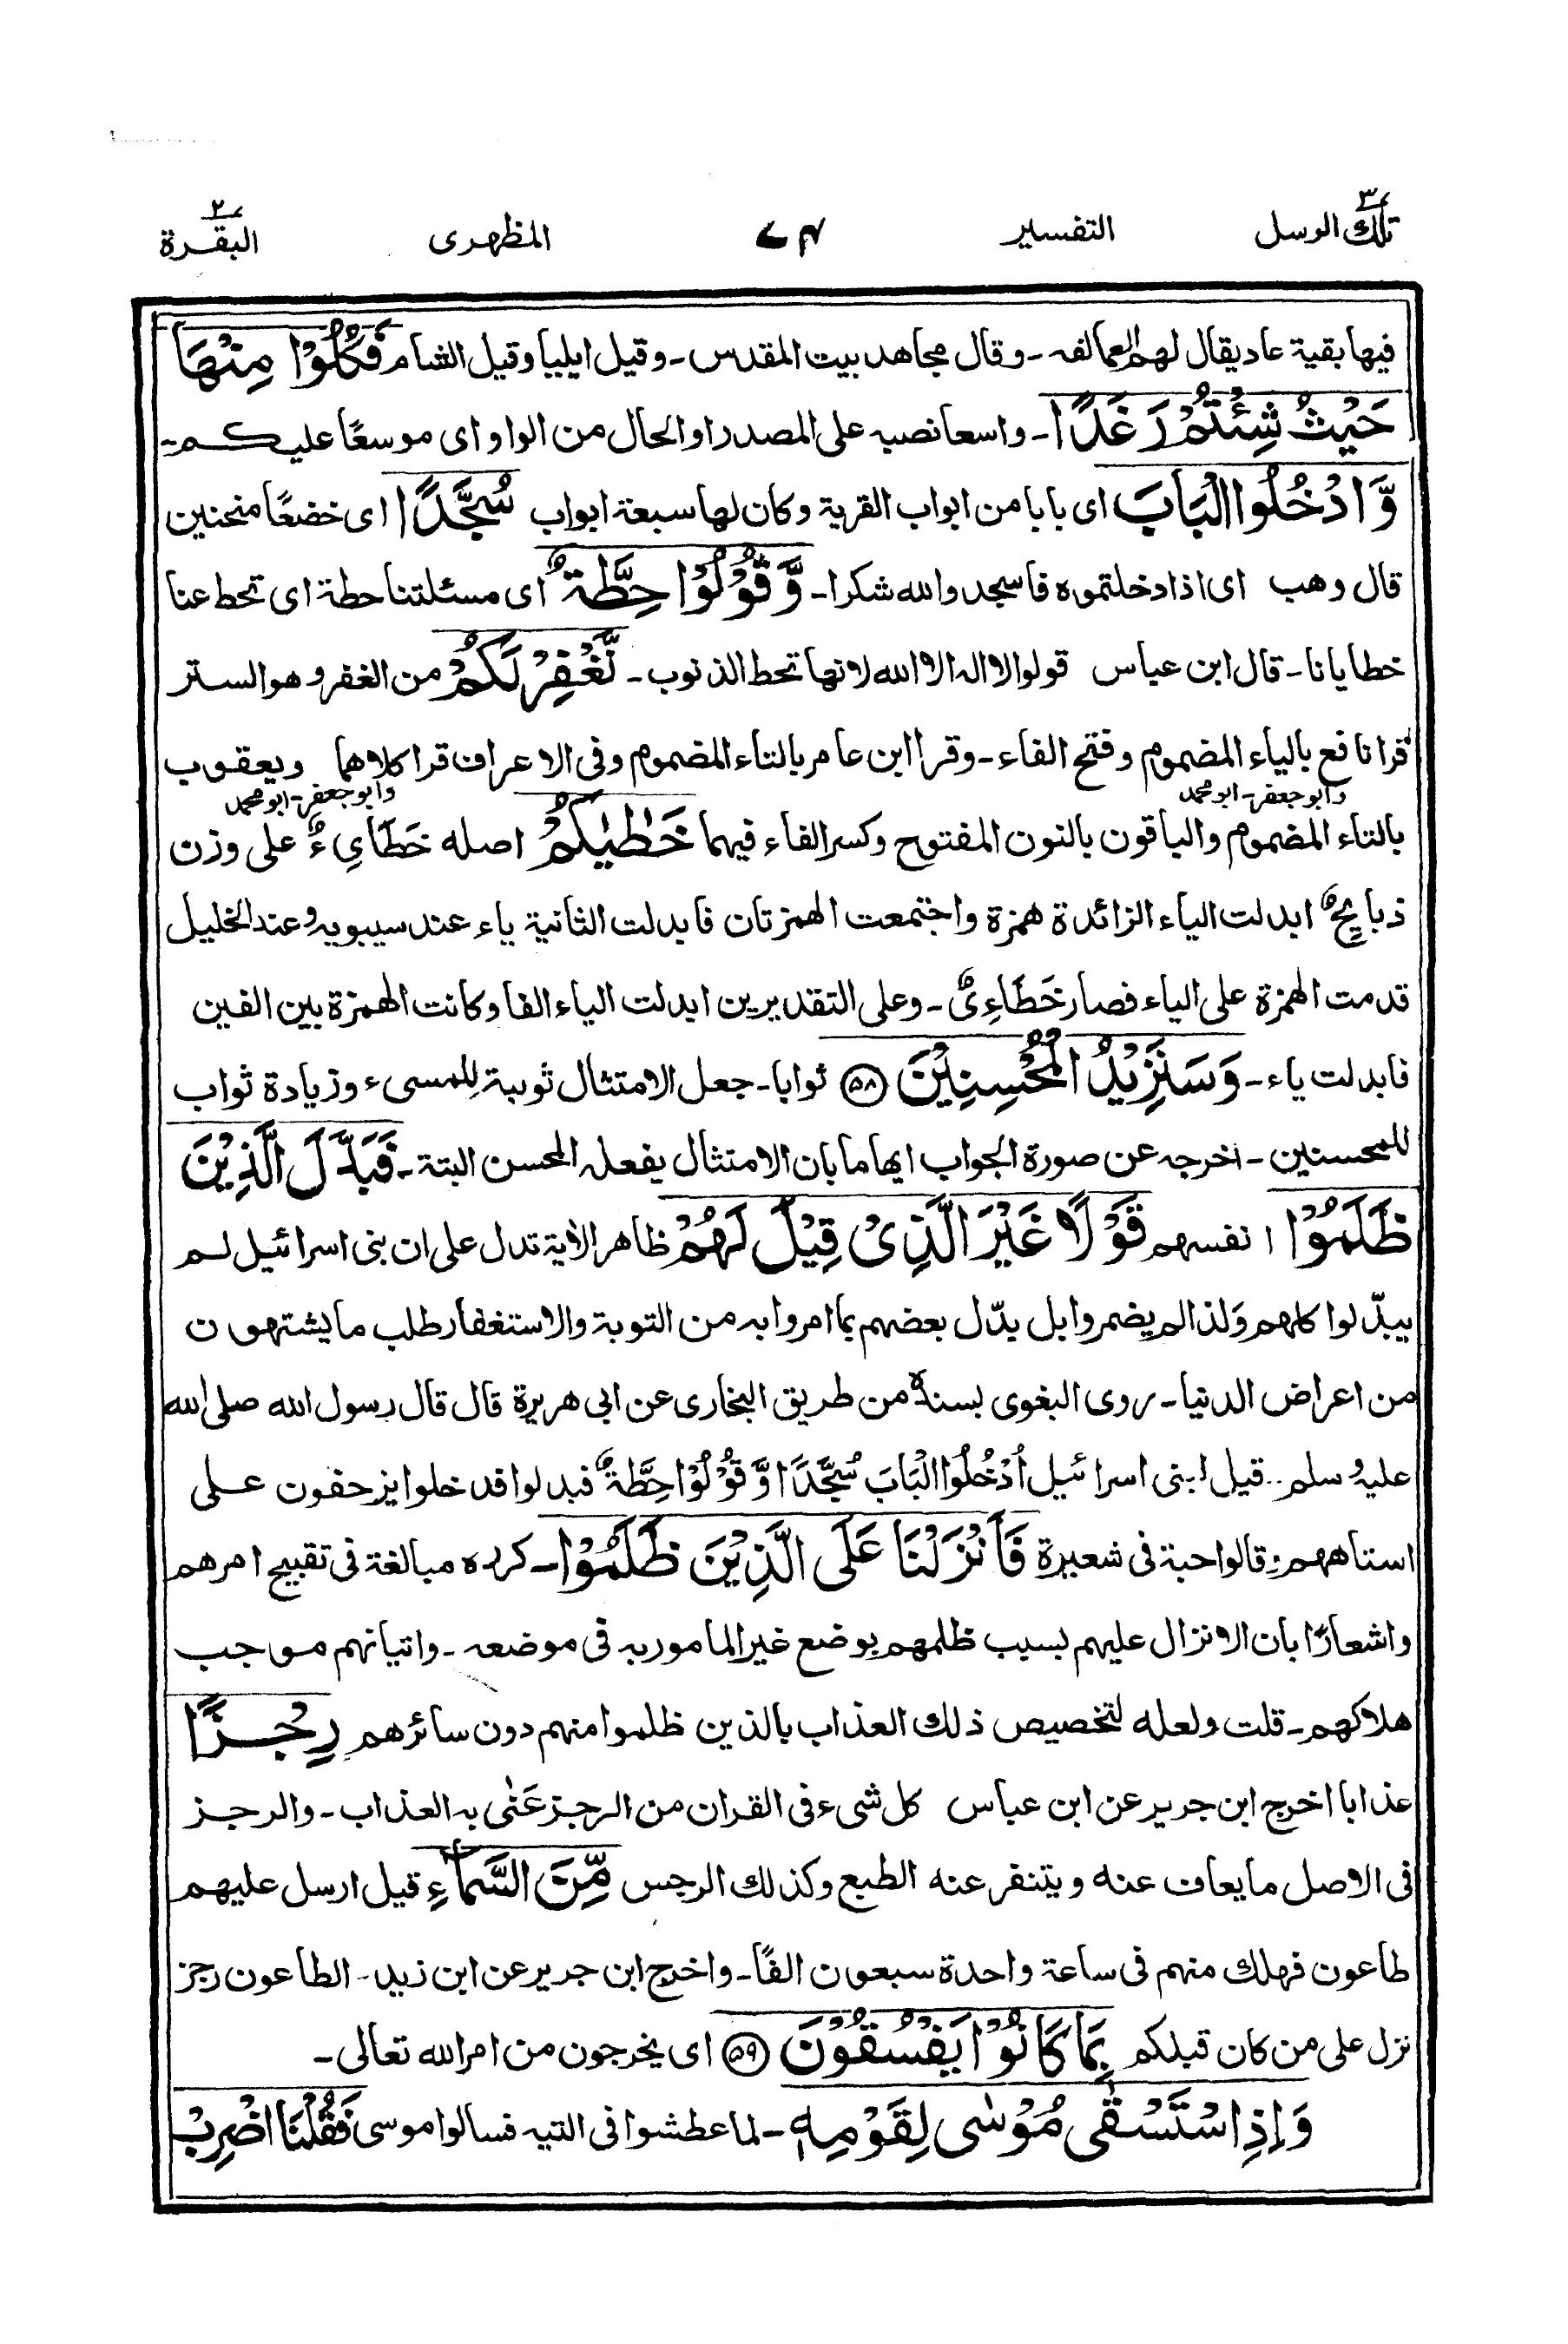 تلك الرسل ۳ التفسیر ۷۴ المظهری البقرة ۲
فیها بقیة عاد یقال لهم العمالقه - وقال مجاهد بیت المقدس - وقیل ایلیا وقیل الشام فَكُلُوْا مِنْهَا
حَیْثُ شِئْتُمْ رَغَدًا - واسعا نصبه علی المصدر او الحال من الواو ای موسعًا علیكم -
وَّادْخُلُوا الْبَابَ ای بابا من ابواب القریة وكان لها سبعة ابواب سُجَّدًا ای خضعًا منحنین
قال وهب ای اذا دخلتموه فاسجدوا لله شكرا - وَّقُوْلُوْا حِطَّةٌ ای مسئلتنا حطة ای تحط عنا
خطایانا - قال ابن عباس قولوا لا اله الا الله لانها تحط الذنوب - نَّغْفِرْ لَكُمْ من الغفر وهو الستر
قرا نافع بالیاء المضموم وفتح الفاء - وقرا ابن عامر بالتاء المضموم وفی الاعراف قرا كلاهما ویعقوب
وابو جعفر - ابو محمد وابو جعفر - ابو محمد
بالتاء المضموم والباقون بالنون المفتوح وكسر الفاء فیهما خَطٰیٰكُمْ اصله خَطَایِءُ علی وزن
ذبایِحُ ابدلت الیاء الزائدة همزة واجتمعت الهمزتان فابدلت الثانیة یاء عند سیبویه وعند الخلیل
قدمت الهمزة علی الیاء فصار خَطَاءِیُ - وعلی التقدیرین ابدلت الیاء الفا وكانت الهمزة بین الفین
فابدلت یاء - وَسَنَزِیْدُ الْمُحْسِنِیْنَ ۵۸ ثوابا - جعل الامتثال توبة للمسیء وزیادة ثواب
للمحسنین - اخرجه عن صورة الجواب ایهاما بان الامتثال یفعله المحسن البتة - فَبَدَّلَ الَّذِیْنَ
ظَلَمُوْا انفسهم قَوْلًا غَیْرَ الَّذِیْ قِیْلَ لَهُمْ ظاهر الاٰیة تدل علی ان بنی اسرائیل لم
یبدّلوا كلهم وَلذا لم یضمروا بل بدّل بعضهم بما امروا به من التوبة والاستغفار طلب ما یشتهون
من اعراض الدنیا - روی البغوی بسنده من طریق البخاری عن ابی هریرة قال قال رسول الله صلی الله
علیه وسلم - قیل لبنی اسرائیل اُدْخُلُوا الْبَابَ سُجَّدًا وَّقُوْلُوْا حِطَّةٌ فبدلوا فدخلوا یزحفون علی
استاههم وقالوا حبة فی شعیرة فَاَنْزَلْنَا عَلَی الَّذِیْنَ ظَلَمُوْا - كرره مبالغة فی تقبیح امرهم
واشعارًا بان الانزال علیهم بسبب ظلمهم بوضع غیر المامور به فی موضعه - واتیانهم موجب
هلاكهم - قلت ولعله لتخصیص ذلك العذاب بالذین ظلموا منهم دون سائرهم رِجْزًا
عذابا اخرج ابن جریر عن ابن عباس كل شیء فی القران من الرجز عَنٰی به العذاب - والرجز
فی الاصل ما یعاف عنه ویتنفر عنه الطبع وكذلك الرجس مِّنَ السَّمَآءِ قیل ارسل علیهم
طاعون فهلك منهم فی ساعة واحدة سبعون الفًا - واخرج ابن جریر عن ابن زید - الطاعون رجز
نزل علی من كان قبلكم بِمَا كَانُوْا یَفْسُقُوْنَ ۵۹ ای یخرجون من امر الله تعالی -
وَاِذِ اسْتَسْقٰی مُوْسٰی لِقَوْمِهٖ - لما عطشوا فی التیه فسالوا موسی فَقُلْنَا اضْرِبْ